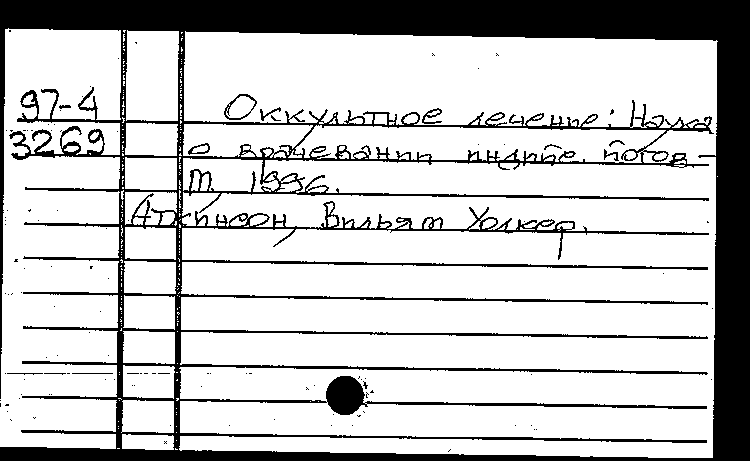 97-4
3269
Оккультное лечение: Наука
о врачевании индийс. йогов -
М, 1996.
Аткинсон, Вильям Уолкер.